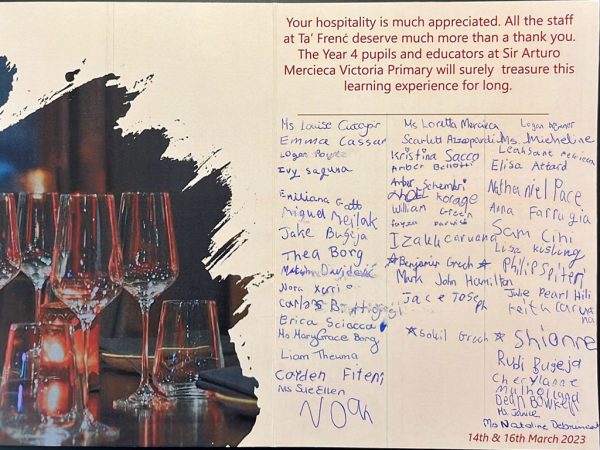 Your hospitality is much appreciated. All the staff
at Ta' Frenċ deserve much more than a thank you.
The Year 4 pupils and educators at Sir Arturo
Mercieca Victoria Primary will surely treasure this
learning experience for long.
Ms Louise
Emma Cassar
Logan
Ivy Saguna
Emiliana Gatt
Miguel Mejlak
Jake Bugeja
Thea Borg
Nora Xuri
Erica Sciacca
Ms MaryGrace Borg
Liam Theuma
Caiden Fiteni
Ms SueEllen
NOAH
Ms Loretta Mercieca
Scarlett Azzopardi
Kristina Sacco
Amber Bellotti
Amber Schembri
William Green
Izakk Caruana
Benjamin Grech
Mark John Hamilton
Jace Joseph
Sahil Grech
Logan
Ms. Micheline
Leahsane Mercieca
Elisa Attard
Nathaniel Pace
Anna Farrugia
Sam Cini
Luisa
Philip Spiteri
Julie Pearl Hili
Keita Caruana
Shionne
Rudi Bugeja
Cherylanne
Mulholland
Dean
Ms Janice
Ms Nataline Debrincat
14th & 16th March 2023